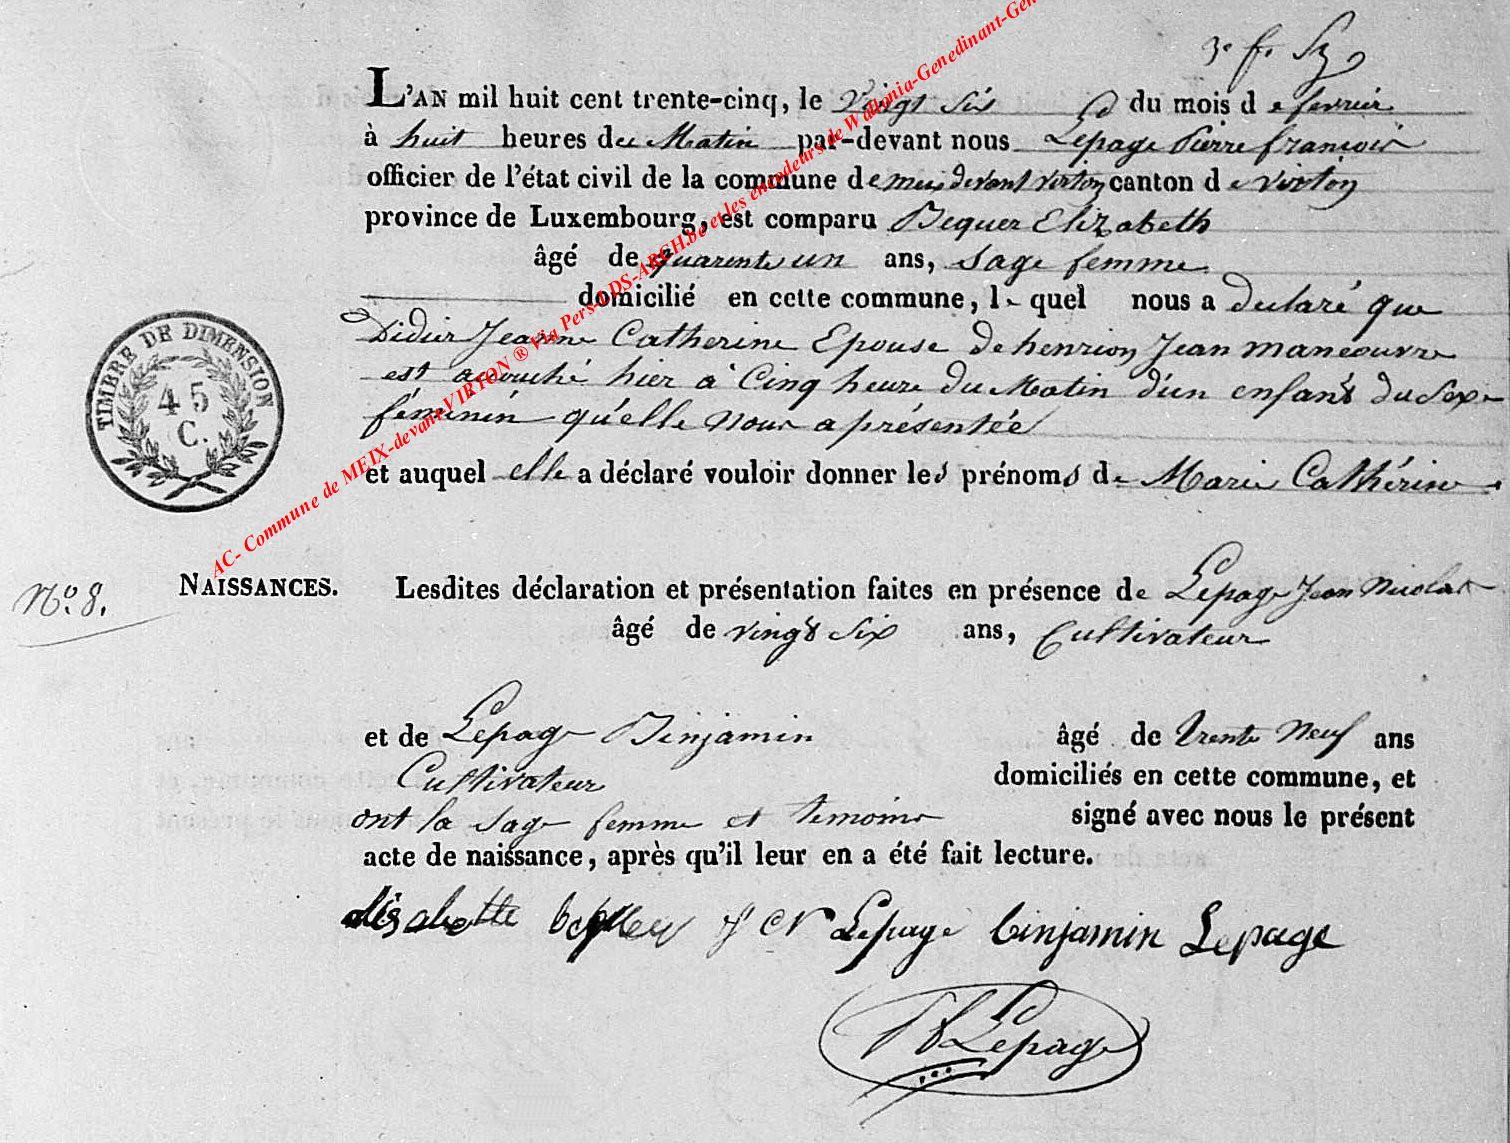 3e f. Sz
L'AN mil huit cent trente-cinq, le Vingt Six du mois de fevrier
à huit heures du Matin par-devant nous Lepage Pierre francois
officier de l'état civil de la commune de meix devant virton canton de virton
province de Luxembourg, est comparu Bequer Elizabeth
âgé de quarente un ans, sage femme
domicilié en cette commune, le quel nous a declaré que
Didier Jeanne Catherine Epouse de henrion Jean maneouvre
est acouché hier a Cinq heure du Matin d'un enfant du Sexe
féminin qu'elle nous a présentée
et auquel elle a déclaré vouloir donner les prénoms de Marie Cathérine
TIMBRE DE DIMENSION
45
C.
AC- Commune de MEIX-devant-VIRTON ® Via Pers-LDS-ARCH.be et les encodeurs de Wallonia-Genedinant-Gen
No. 8.
NAISSANCES.
Lesdites déclaration et présentation faites en présence de Lepage Jean Nicolas
âgé de vingt Six ans, Cultivateur
et de Lepage Binjamin âgé de trente Neuf ans
Cultivateur domiciliés en cette commune, et
ont la sage femme et temoins signé avec nous le présent
acte de naissance, après qu'il leur en a été fait lecture.
Lepage binjamin Lepage
Lepage